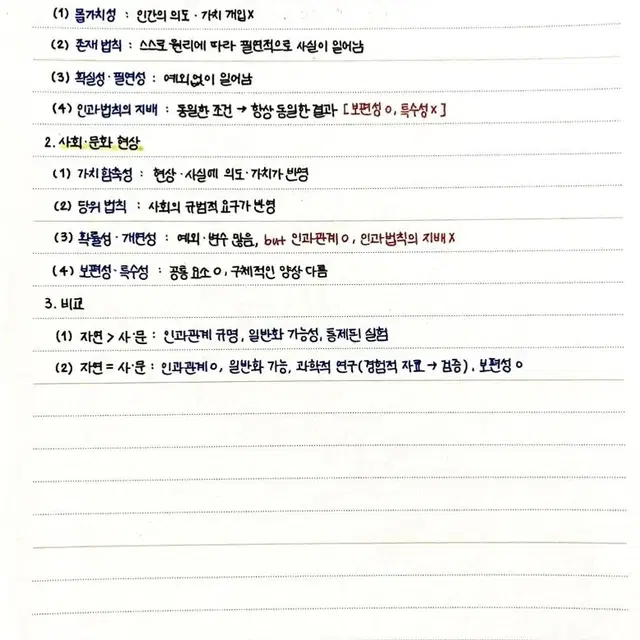 (1) 몰가치성 : 인간의 의도·가치 개입X
(2) 존재 법칙 : 스스로 원리에 따라 필연적으로 사실이 일어남
(3) 확실성·필연성 : 예외없이 일어남
(4) 인과법칙의 지배 : 동일한 조건 → 항상 동일한 결과 [보편성 O, 특수성 X]
2. 사회·문화 현상
(1) 가치 함축성 : 현상·사실에 의도·가치가 반영
(2) 당위 법칙 : 사회의 규범적 요구가 반영
(3) 확률성·개연성 : 예외·변수 많음, but 인과관계 O, 인과법칙의 지배 X
(4) 보편성·특수성 : 공통 요소 O, 구체적인 양상 다름
3. 비교
(1) 자연 > 사·문 : 인과관계 규명, 일반화 가능성, 통제된 실험
(2) 자연 = 사·문 : 인과관계 O, 일반화 가능, 과학적 연구(경험적 자료 → 검증), 보편성 O